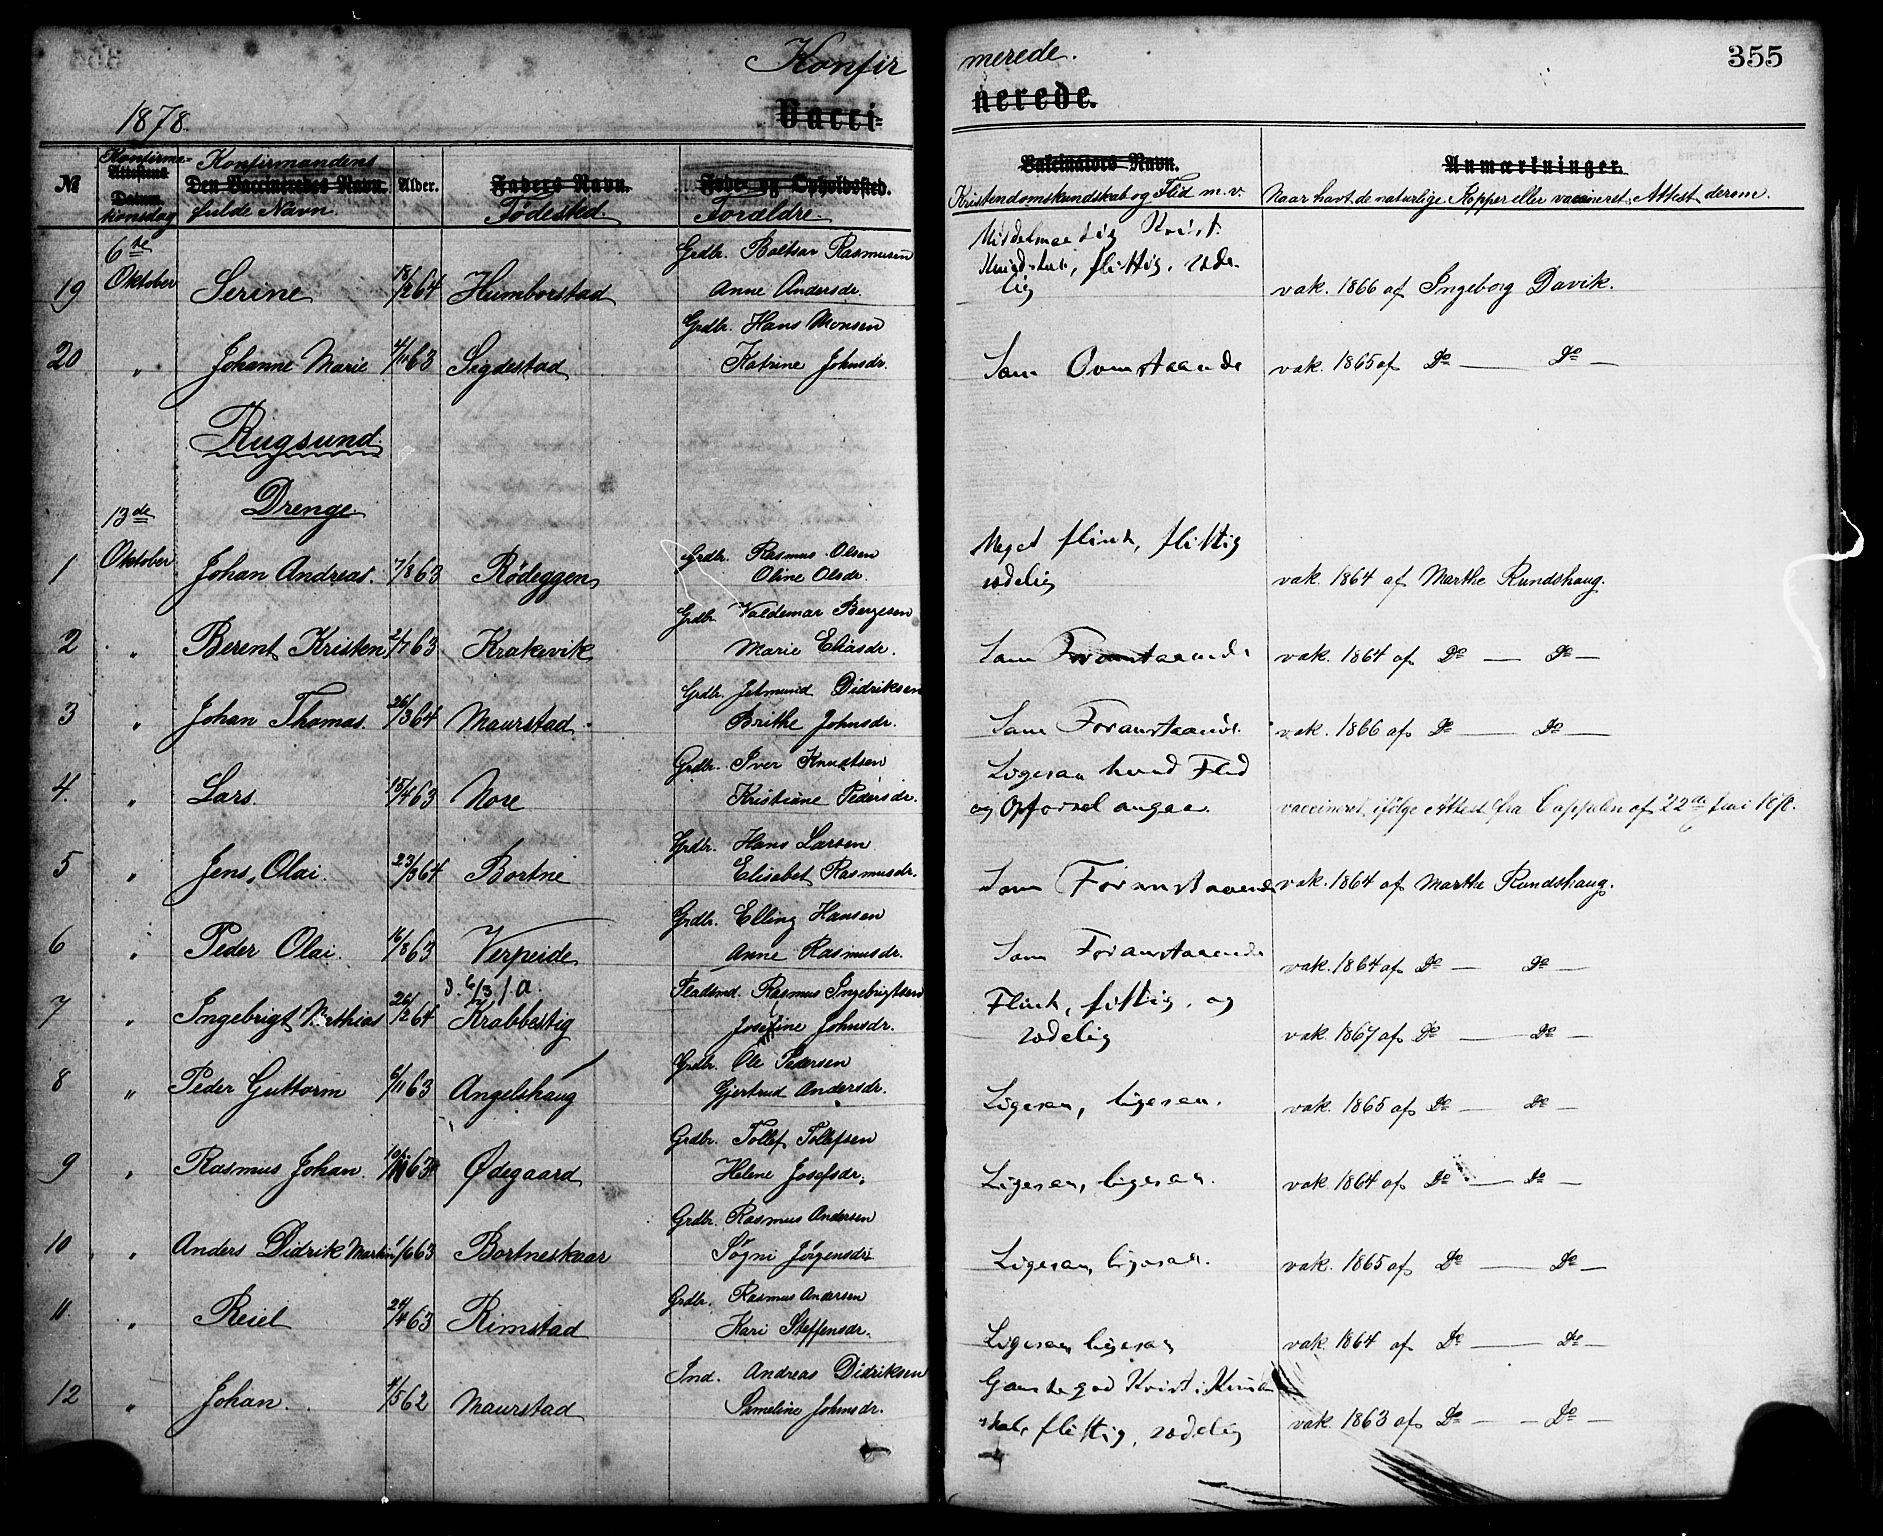 Konfirmerede.
355
1878.
Vaccinerede.
№ | Konfirmationsdag | Konfirmandens fulde Navn | Alder. | Fødested. | Forældre. | Kristendomskundskab og Flid m.v. | Naar havt de naturlige Kopper eller vaccineret, Attest derom.
Attestens Datum. | Den Vaccineredes Navn. | Faders Navn. | Føde- og Opholdssted. | Vaccinators Navn. | Anmærkninger.
19 | 6te Oktober | Serine | 18/2 64 | Humborstad | Grdbr. Baltsar Rasmusen Anne Andersdr. | Middelmaadig Krist. Kundskab, flittig, sædelig | vak. 1866 af Ingeborg Davik.
20 | " | Johanne Marie | 4/10 63 | Sigdestad | Grdbr. Hans Monsen Katrine Johnsdr. | Som Ovenstaaende | vak. 1865 af Do — Do —
Rugsund.
Drenge.
1 | 13de Oktober | Johan Andreas. | 7/8 63 | Rødeggen | Grdbr. Rasmus Olsen Oline Olsdr. | Meget flink, flittig sædelig | vak. 1864 af Marthe Rundshaug.
2 | " | Berent Kristen | 2/7 63 | Krakevik | Grdbr. Valdemar Bergesen Marie Eliasdr. | Som Foranstaaende | vak. 1864 af Do — Do —
3 | " | Johan Thomas. | 26/3 64 | Maurstad. | Grdbr. Jetmund Didriksen Brithe Johnsdr. | Som Foranstaaende. | vak. 1866 af Do — Do —
4. | " | Lars. | 15/4 63 | Nore | Grdbr. Iver Knudtsen Kristiane Pedersdr. | Ligesaa hvad Flid og Opførsel angaa. | vaccineret ifølge Attest fra Cappelen af 22de Juni
5 | " | Jens Olai. | 23/3 64 | Bortne | Grdbr. Hans Larsen Elisabet Rasmusdr. | Som Foranstaaende | vak. 1864 af Marthe Rundshaug.
6 | " | Peder Olai. | 16/8 63 | Verpeide | Grdbr. Elling Hansen Anne Rasmusdr. | Som Foranstaaende | vak. 1864 af Do — Do —
7 | " | Ingebrigt Mathias | 26/2 64 | d. 6/3 f a. Krabbestig | Pladsmd. Rasmus Ingebrigtsen Josefine Johnsdr. | Flink, flittig, og sædelig | vak. 1867 af Do — Do —
8 | " | Peder Guttorm | 6/11 63 | Angelshaug | Grdbr. Ole Pedersen Gjertrud Andersdr. | Ligesaa, ligesaa. | vak. 1865 af Do — Do —
9 | " | Rasmus Johan. | 63 | Ødegaard | Grdbr. Tollef Tollefsen Helene Josefsdr. | Ligesaa, ligesaa. | vak. 1864 af Do — Do —
10 | " | Anders Didrik Martin | 1/6 63 | Bortneskaar | Grdbr. Rasmus Andersen Søgni Jørgensdr. | Ligesaa, ligesaa. | vak. 1865 af Do — Do —
11 | " | Reiel | 24/4 63 | Rimstad | Grdbr. Rasmus Andersen Kari Steffensdr. | Ligesaa, ligesaa | vak. 1864 af Do — Do —
12 | " | Johan. | 4/5 62 | Maurstad | Ind. Andreas Didriksen Sameline Johnsdr. | Ganske god Kristi. Kundskab, flittig, sædelig | vak. 1863 af Do — Do —